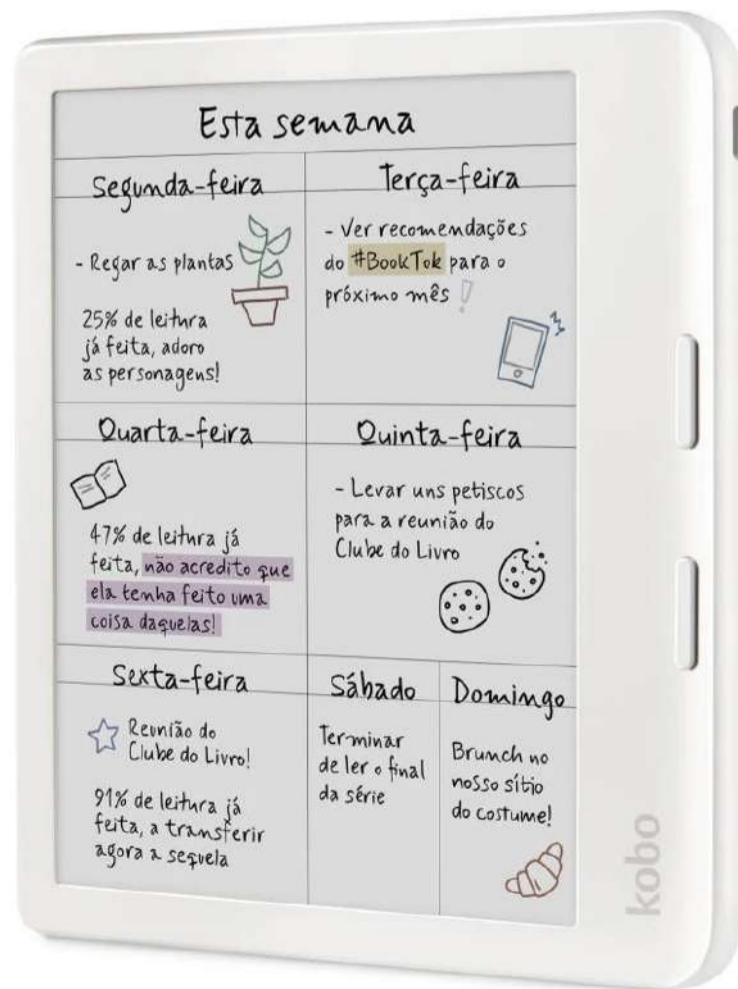 Esta semana
Segunda-feira
- Regar as plantas
25% de leitura
já feita, adoro
as personagens!
Terça-feira
- Ver recomendações
do #BookTok para o
próximo mês !
Quarta-feira
47% de leitura já
feita, não acredito que
ela tenha feito uma
coisa daquelas!
Quinta-feira
- Levar uns petiscos
para a reunião do
Clube do Livro
Sexta-feira
Reunião do
Clube do Livro!
91% de leitura já
feita, a transferir
agora a sequela
Sábado
Terminar
de ler o final
da série
Domingo
Brunch no
nosso sítio
do costume!
kobo